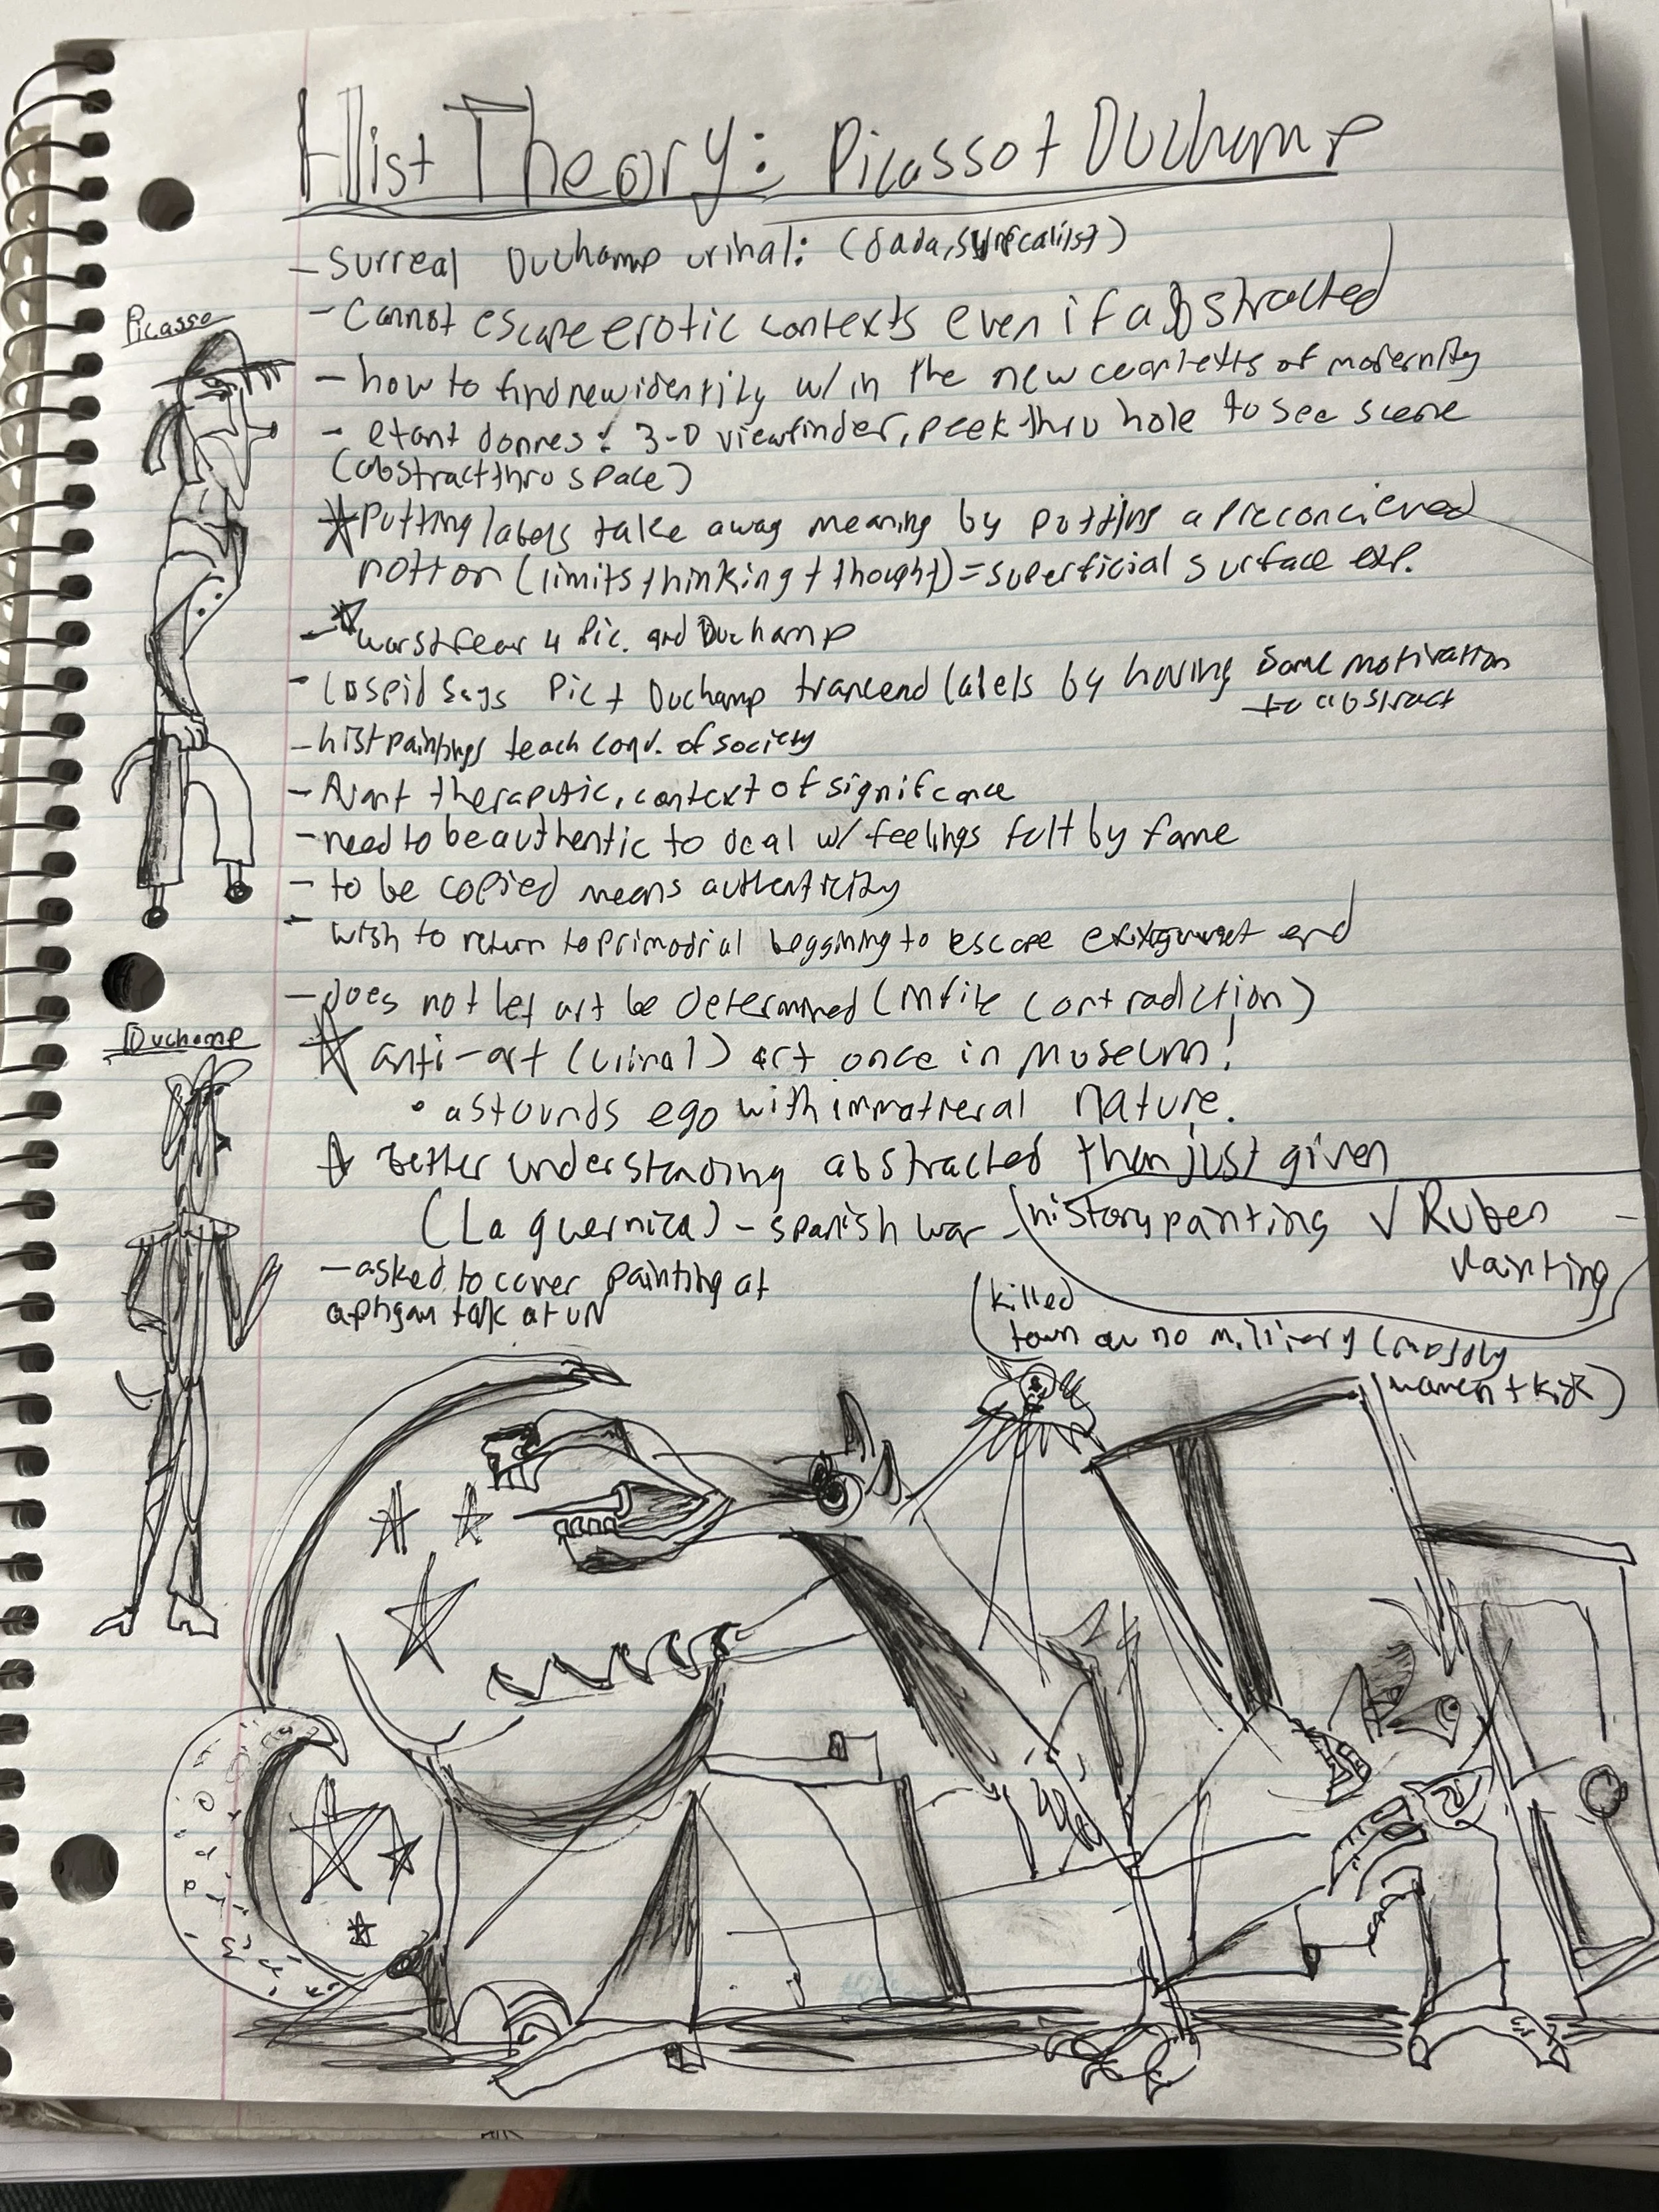 Hist Theory: Picasso + Duchamp
- Surreal Duchamp urinal: (dada, surrealist)
- Cannot escape erotic contexts even if abstracted
Picasso
- how to find new identity w/in the new contexts of modernity
- etant donnes: 3-D viewfinder, peek thru hole to see scene
(abstract thru space)
☆ Putting labels take away meaning by putting a preconcieved
notion (limits thinking + thought) = superficial surface exp.
- ☆ worst fear 4 Pic. and Duchamp
- says Pic + Duchamp trancend labels by having same motivation
to abstract
- hist paintings teach conv. of society
- Avant theraputic, context of significance
- need to be authentic to deal w/ feelings felt by fame
- to be copied means authenticity
- wish to return to primodrial beggining to escape end
- does not let art be determined (infite contradiction)
Duchamp
☆ anti-art (urinal) art once in museum!
• astounds ego with immatieral nature.
☆ Better understanding abstracted than just given
(La guernica) - spanish war - (history painting √ Ruben
Painting
- asked to cover painting at
aphgan talk at UN
(killed
town w no military (mostly
women + kids)